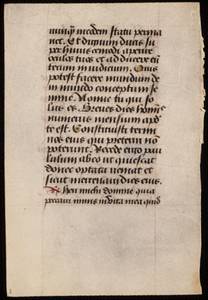 nunq̃ in eodem statu perma
net. Et dignum ducis su
per huiuscemodi aperire
oculos tuos et adducere eū
tecum in iudicium. Quis
potest facere mundum de
in mundo conceptum se
mine. Nonne tu qui so
lus es. Breues dies hominis
numerus mensium apud
te est. Constituisti termi
nos eius qui preteriri nō
poterunt. Recede ergo pau
lulum ab eo ut quiescat
donec optata ueniat et
sicut mercenarii dies eius.
Heu michi domine quia
peccaui nimis in vita mea quid